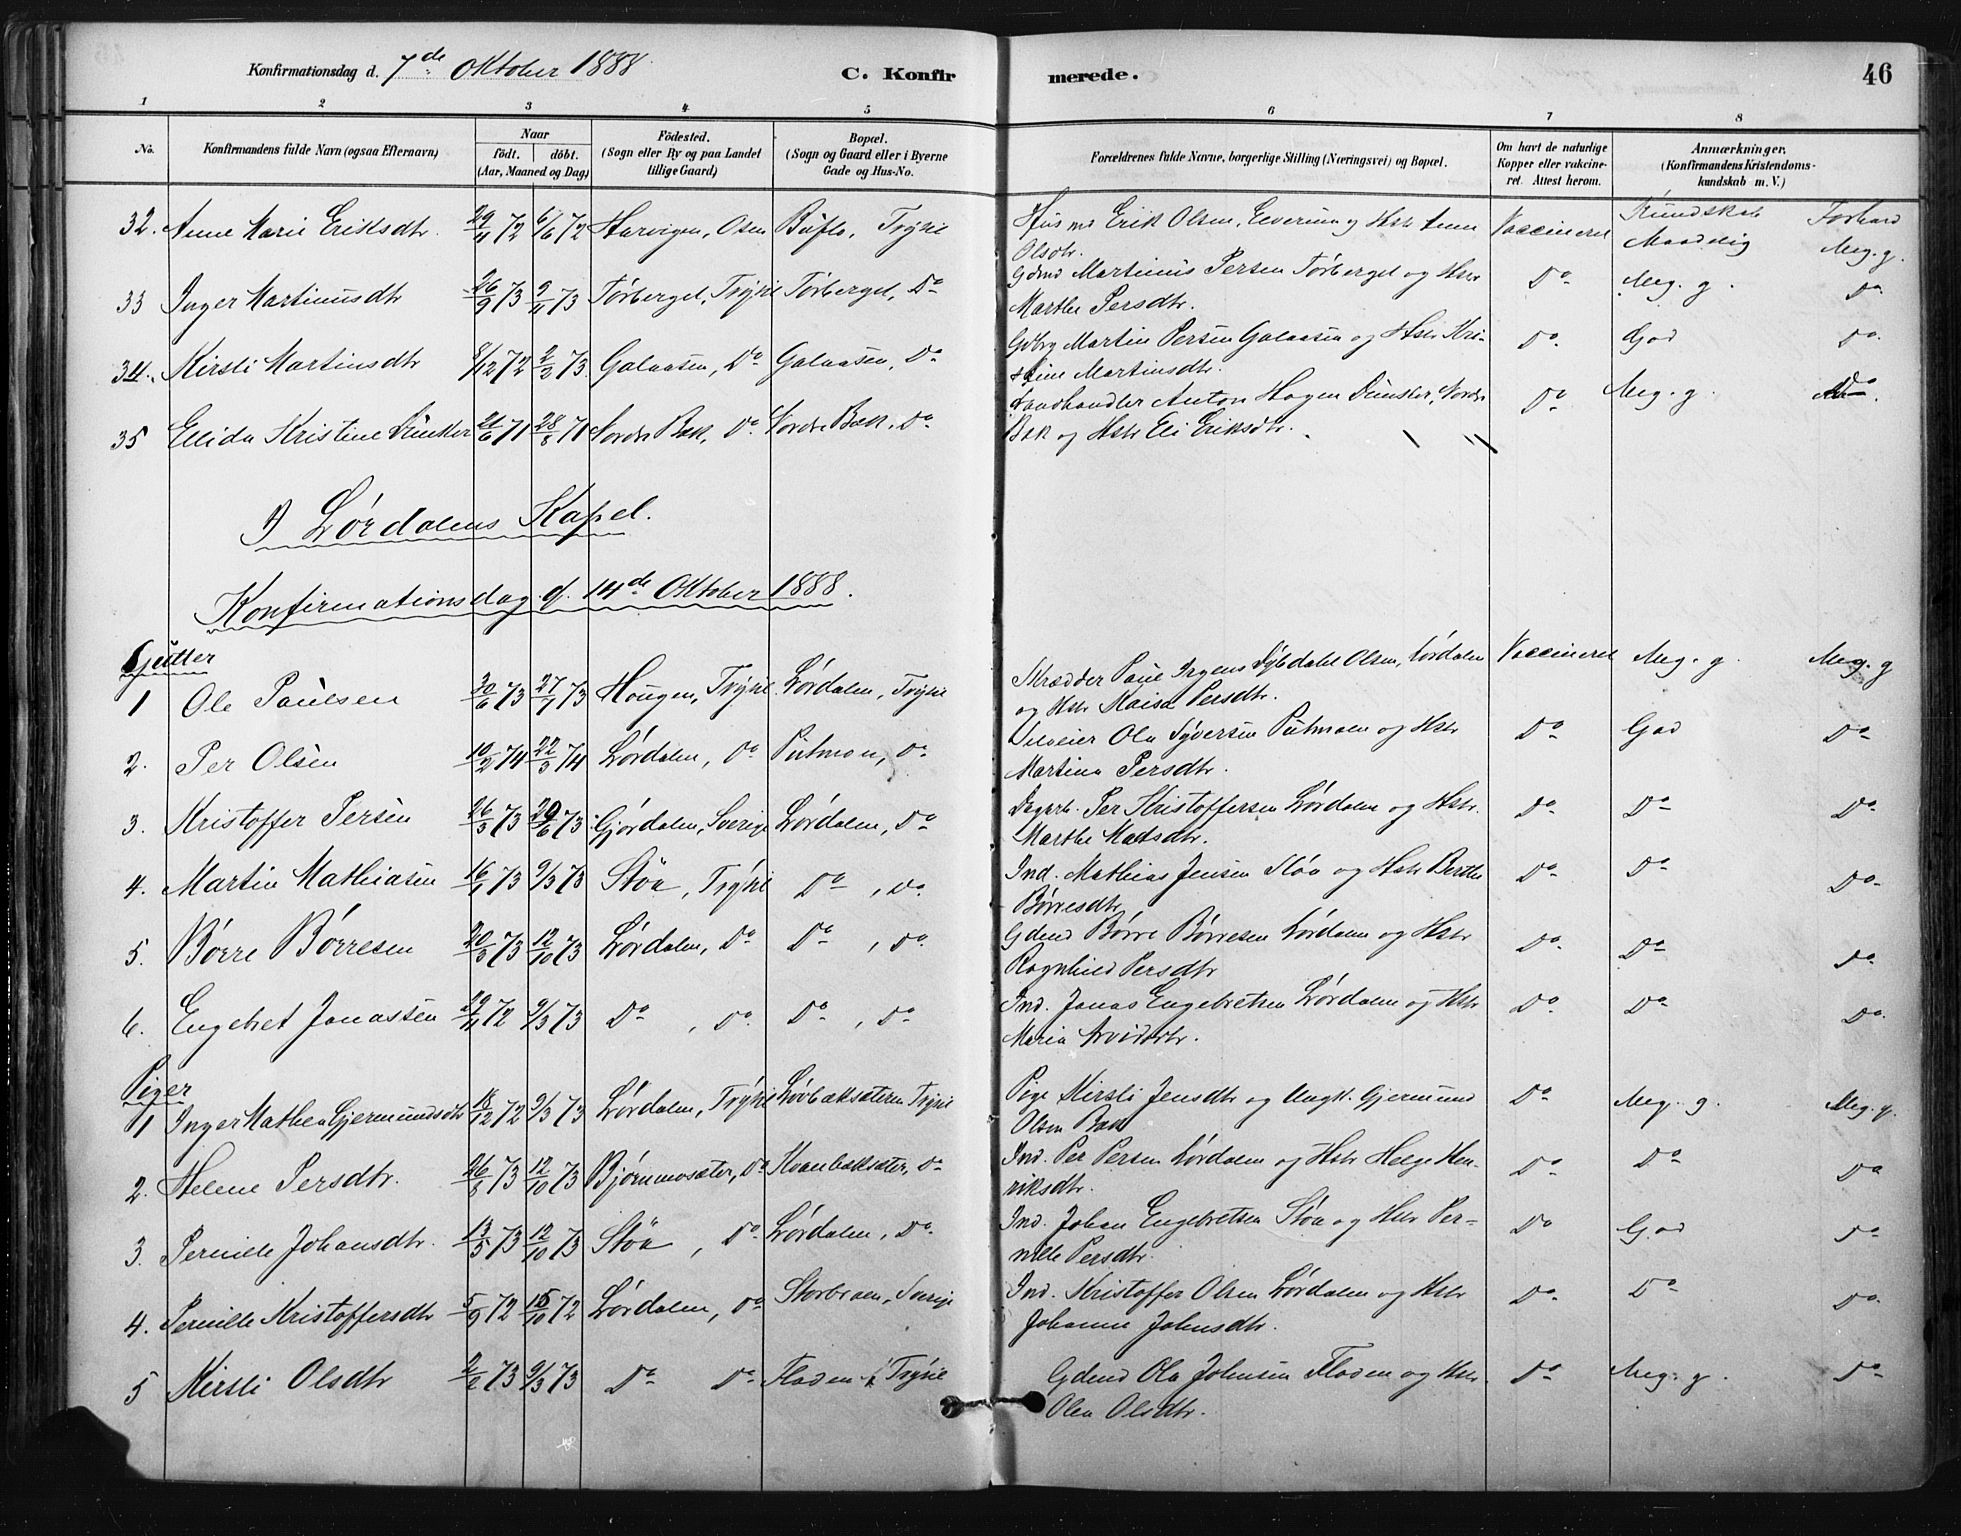 Konfirmationsdag d. 7de Oktober 1888. C. Konfirmerede. 46
1 2 3 4 5 6 7 8
No. Konfirmandens fulde Navn (ogsaa Efternavn) Naar födt. döbt. (Aar, Maaned og Dag) Födested. (Sogn eller By og paa Landet tillige Gaard) Bopæl. (Sogn og Gaard eller i Byerne Gade og Hus-No. Forældrenes fulde Navne, borgerlige Stilling (Næringsvei) og Bopæl. Om havt de naturlige Kopper eller vakcineret. Attest herom. Anmærkninger. (Konfirmandens Kristendomskundskab m. V.)
Kundskab Forhold
32. Anne Marie Eriksdtr. 29/4 72 6/6 72 Osen Trysil Husmd Erik Olsen, Elverum og Hstr Anne Vaccineret Maadelig Meg. g.
Olsdtr.
33 Inger Martinusdtr 26/9 73 9/11 73 Tørberget, Trysil Tørberget, Do Gdmd Martinus Persen Tørberget og Hstr Do Meg. g. Do
Marthe Persdtr.
34. Kirsti Martinsdtr 8/12 72 2/2 73 Galaasen, Do Galaasen, Do Gdbrg Martin Persen Galaasen og Hstr Kri- Do. God Do.
stine Martinsdtr.
35 Ellida Kristine Dunker 21/6 71 28/8 71 Nordre Bak, Do Nordre Bak, Do Landhandler Anton Hagen Dunker, Nordre Do Meg. g. Do.
Bak og Hstr Eli Eriksdtr.
I Lørdalens Kapel.
Konfirmationsdag d. 14de Oktober 1888.
Gutter
1 Ole Paulsen 30/6 73 27/7 73 Hougen, Trysil Lørdalen, Trysil Skrædder Paul Irgens Dybdahl Olsen, Lørdalen Vaccineret Meg. g. Meg. g
og Hstr Maisa Persdtr.
2. Per Olsen 10/2 74 22/3 74 Lørdalen, Do Putmoen, Do Selveier Ola Syversen Putmoen og Hstr Do God Do
Martina Persdtr.
3. Kristoffer Persen 26/3 73 29/6 73 Gjørdalen, Sverige Lørdalen, Do Dagarb. Per Kristoffersen Lørdalen og Hstr. Do Do Do.
Marthe Matsdtr.
4. Martin Mathiasen 16/1 73 9/3 73 Støa, Trysil Do, Do. Ind. Mathias Jensen Støa og Hstr Berthe Do Do Do
Børresdtr
5. Børre Børresen 20/8 73 12/10 73 Lørdalen, Do Do, Do. Gdmd Børre Børresen Lørdalen og Hstr Do. Do Do
Ragnhild Persdtr
6. Engebret Jonassen 29/11 72 9/3 73 Do, Do. Do, Do Ind. Jonas Engebretsen Lørdalen og Hstr Do. Do Do.
Maria Arvidsdtr.
Piger
1 Inger Mathea Gjermundsdtr 18/12 72 9/3 73 Lørdalen, Trysil Løvbæksæteren Trysil Pige Kirsti Jensdtr og Ungk. Gjermund Do Meg. g. Meg. g.
Olsen Bak
2. Helene Persdtr. 26/8 73 12/10 73 Bjørnmosæter, Do Kvanbæksæter, Do Ind. Per Persen Lørdalen og Hstr Helge Hen- Do Do Do
riksdtr.
3. Pernille Johansdtr. 13/5 73 12/10 73 Støa, Do Lørdalen, Do. Ind. Johan Engebretsen Støa og Hstr Per- Do God Do
nille Persdtr.
4. Pernille Kristoffersdtr 5/9 72 15/10 72 Lørdalen, Do Storbroen, Sverige Ind. Kristoffer Olsen Lørdalen og Hstr Do. Do Do.
Johanne Johnsdtr.
5 Kirsti Olsdtr 2/2 73 9/3 73 Do Do Floden i Trysil Gdmd Ola Johnsen Floden og Hstr. Do Meg. g. Do
Olea Olsdtr.